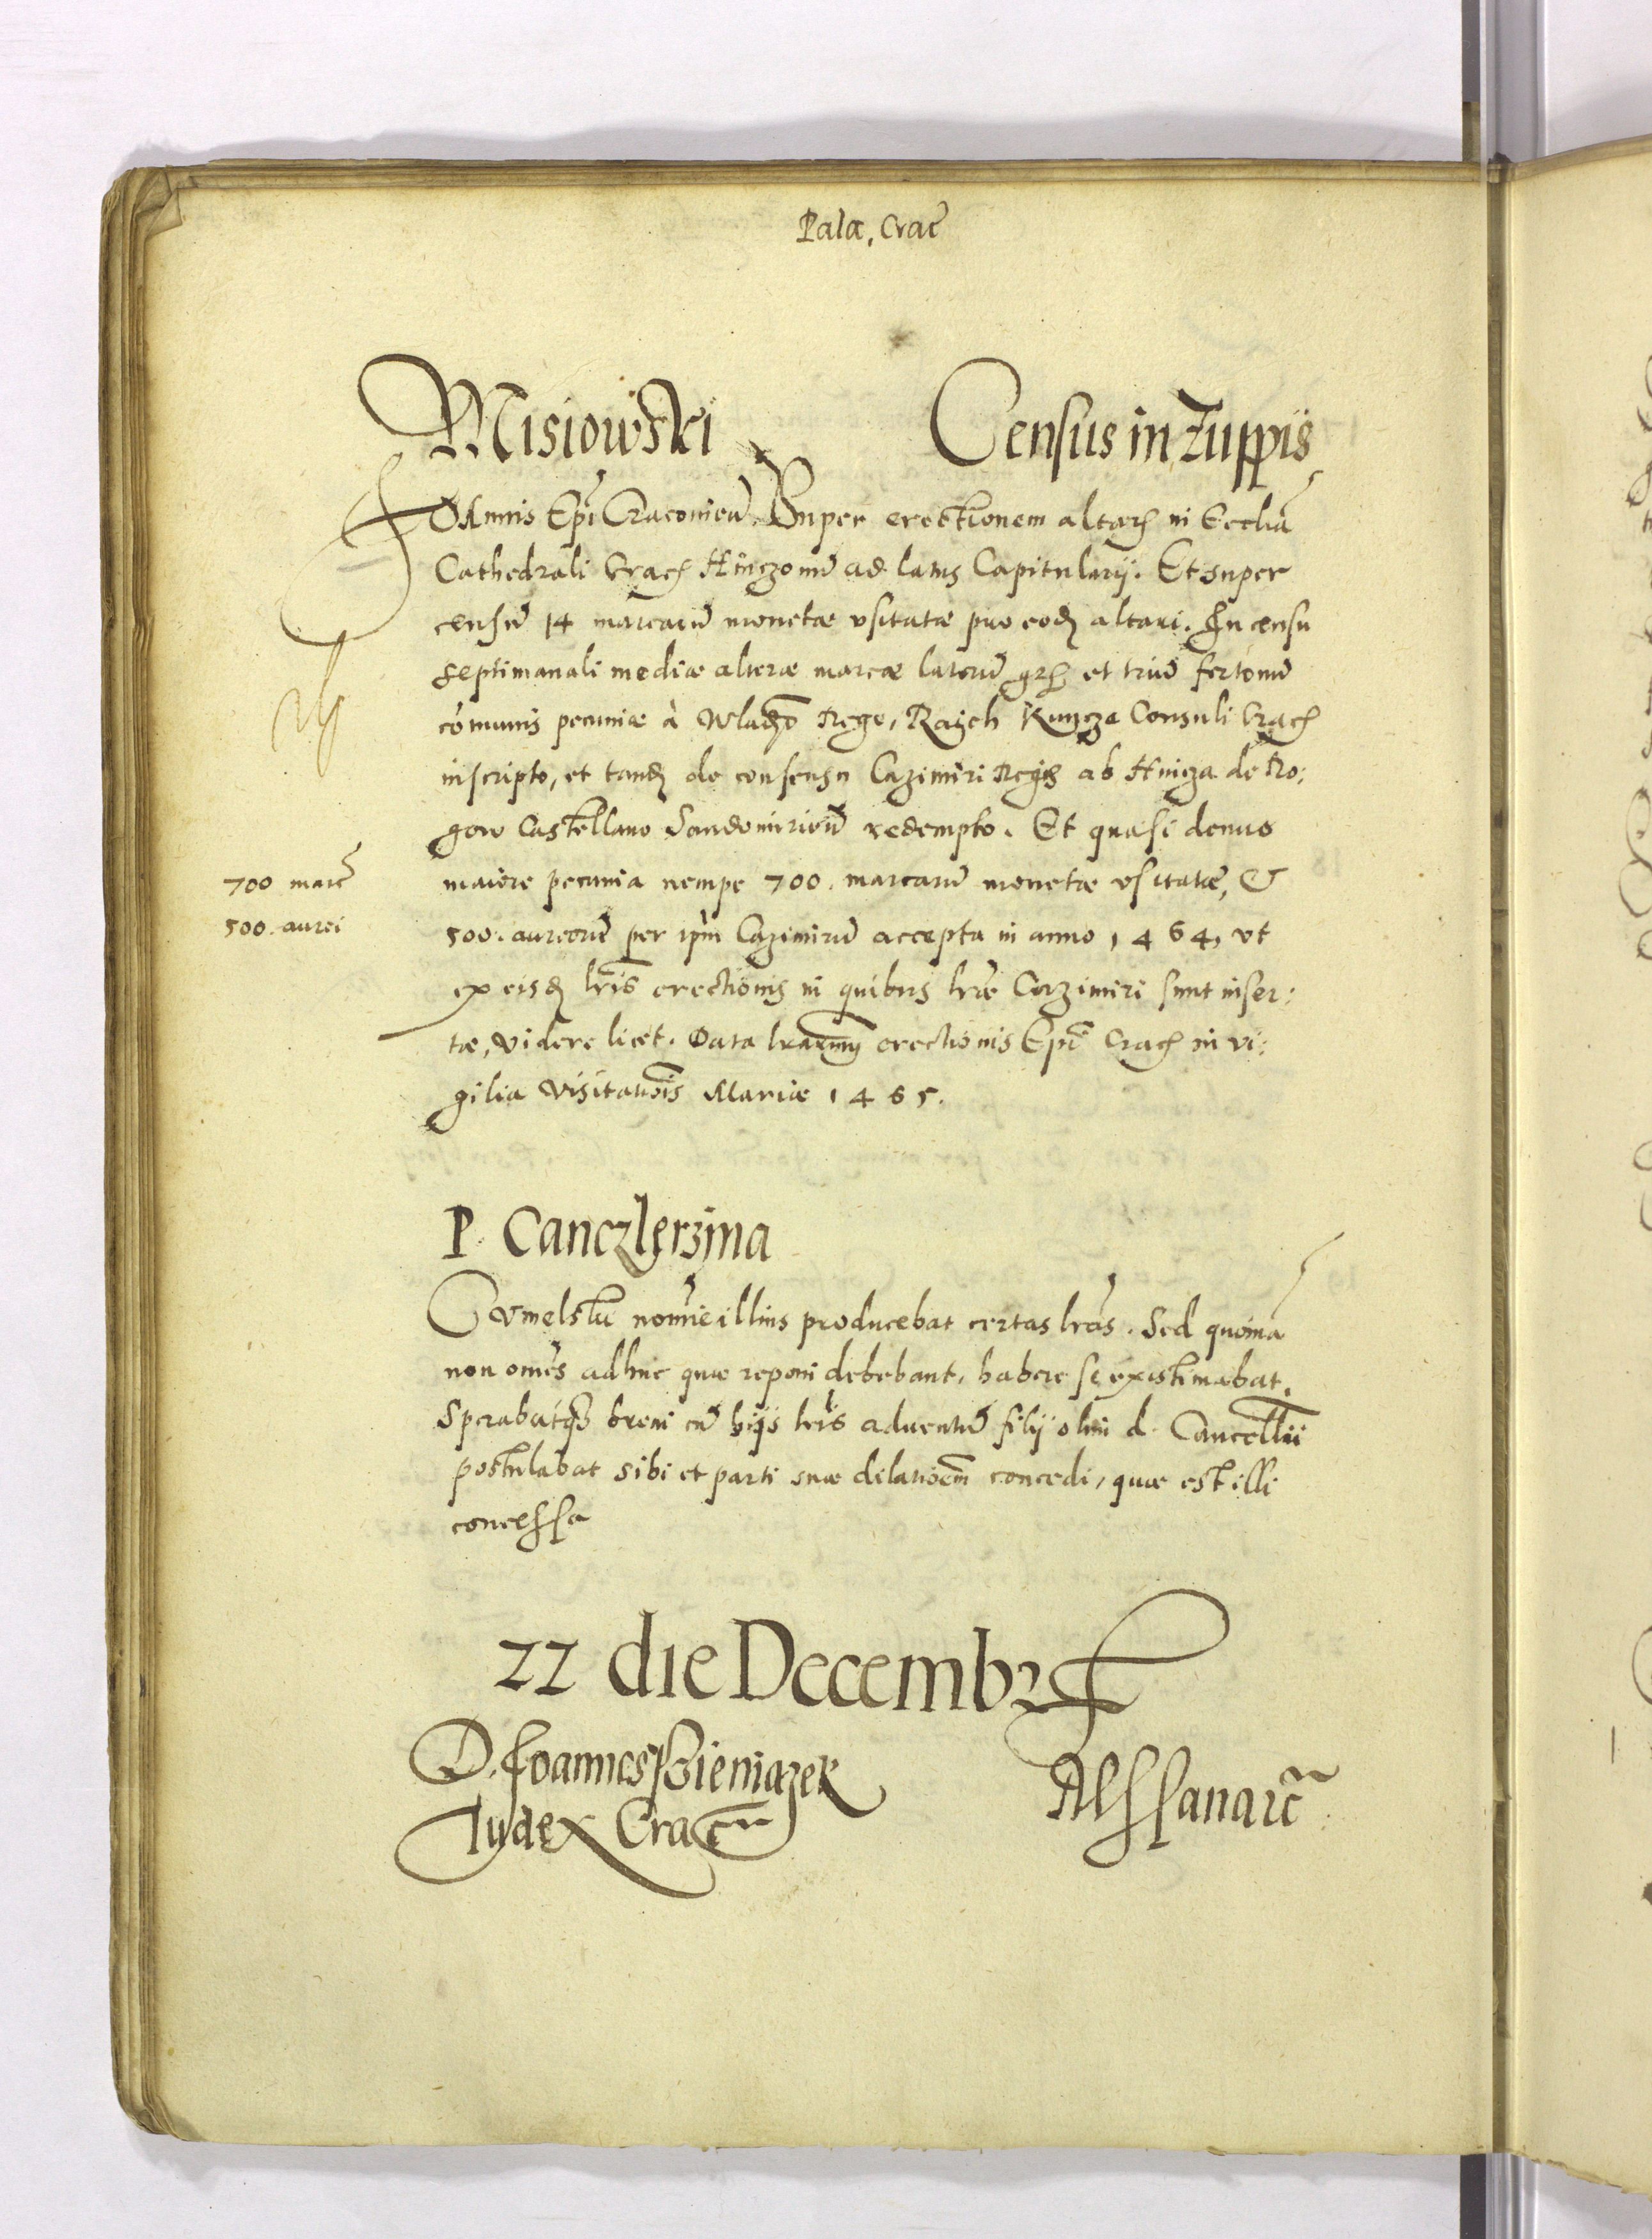 Pala. Crac̃
Misiowski
Census in Zuppis
IOAnnis Ep̃i Craconieñ. Super erectionem altaris in Ecclia͂
Cathedrali Crac̃ Hinczonis ad latus Capitularij. Et super
censũ 14 marcarũ monetæ vsitatæ pro eodẽ altari. In censu
septimanali mediæ alteræ marcæ latorũ gr̃ et triũ fertonũ
cõmunis pecuniæ à Wladzõ Rege, Rajch Kuncza Consuli Crac̃
inscripto, et tandẽ de consensu Cazimiri Regis ab Hincza de Ro:
gow Castellano Sandomirieñ redempto. Et quasi denuo
700 marc̃
maiore pecunia nempe 700. marcarũ monetæ vsitatæ, &
500. aurei
500. aureorũ per ip̃m Cazimirũ accepta in anno 1464, vt
ex eisdẽ lr̃is erectionis in quibus lr̃æ Cazimiri sunt inser:
tæ, videre licet. Data lr̃arum erectionis Ep̃i Crac̃ in vi:
gilia Visitatiõis Mariæ 1465.
P. Canczlerzina
Cvmelski noñie illius producebat certas lr̃as. Sed quonia͂
non oẽs adhuc quæ reponi debebant, habere se existimabat.
Sperabatq̃ breui cũ hijs lr̃is aduentũ filij olim d. Cancellii
postulabat sibi et parti suæ dilatiõem concedi, quæ est illi
concessa
22 die Decembr̃
D. Joannes Bieniazek
Iudex Crac̃